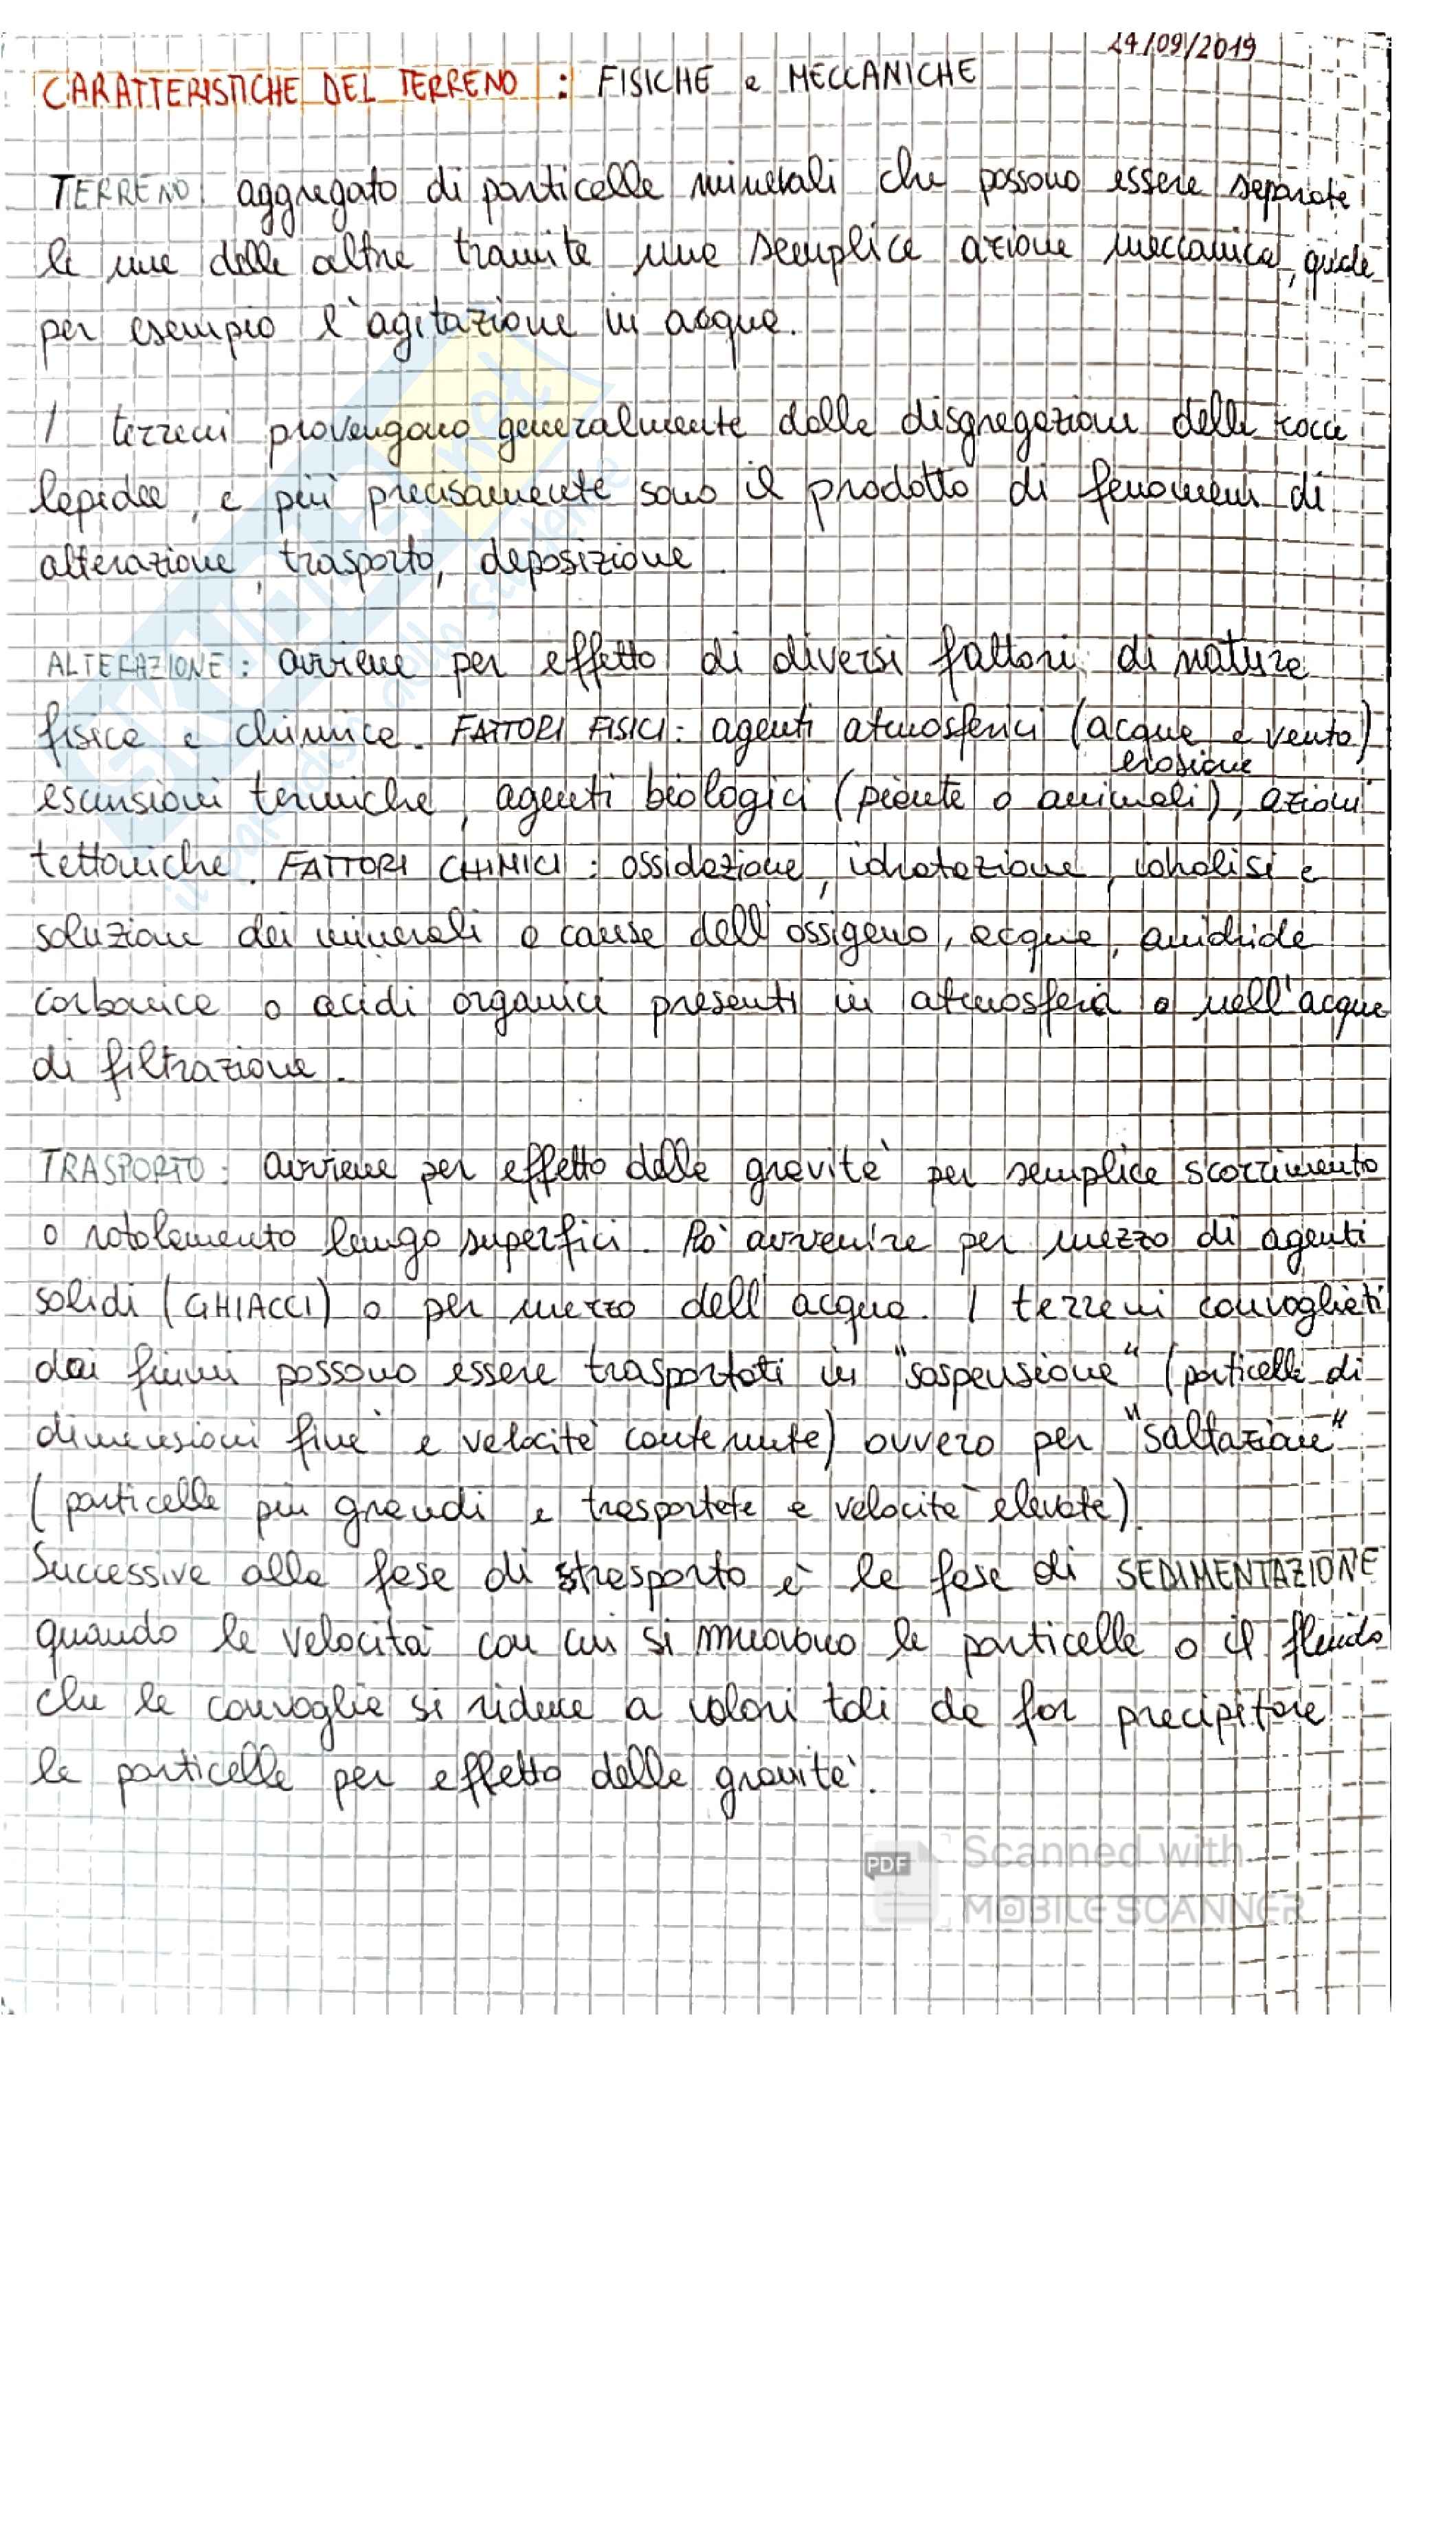 24/09/2019
CARATTERISTICHE DEL TERRENO : FISICHE e MECCANICHE
TERRENO: aggregato di particelle minerali che possono essere separate
le une dalle altre tramite una semplice azione meccanica, quale
per esempio l'agitazione in acqua.
I terreni provengono generalmente dalla disgregazione delle rocce
lapidee, e più precisamente sono il prodotto di fenomeni di
alterazione, trasporto, deposizione.
ALTERAZIONE: avviene per effetto di diversi fattori di natura
fisica e chimica. FATTORI FISICI: agenti atmosferici (acqua e vento)
erosione
escursioni termiche, agenti biologici (piante o animali), azioni
tettoniche. FATTORI CHIMICI: ossidazione, idratazione, idrolisi e
soluzione dei minerali a causa dell'ossigeno, acqua, anidride
carbonica o acidi organici presenti in atmosfera o nell'acqua
di filtrazione.
TRASPORTO: avviene per effetto della gravità per semplice scorrimento
o rotolamento lungo superfici. Pò avvenire per mezzo di agenti
solidi (GHIACCI) o per mezzo dell'acqua. I terreni convogliati
dai fiumi possono essere trasportati in "sospensione" (particelle di
dimensioni fine e velocità contenute) ovvero per "saltazione"
(particelle più grandi e trasportate a velocità elevate).
Successiva alla fase di trasporto è la fase di SEDIMENTAZIONE
quando la velocità con cui si muovono le particelle o il fluido
che le convoglia si riduce a valori tali da far precipitare
le particelle per effetto della gravità.
SKUOLA.net
il paradiso dello studente
PDF
Scanned with
MOBILE SCANNER